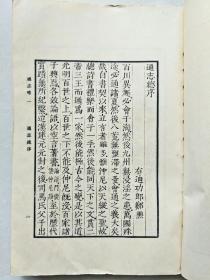 通志總序
右迪功郎鄭樵
百川異趨必會于海然後九州無浸淫之患萬國殊
途必通諸夏然後八荒無壅滯之憂會通之義大矣
哉自書契以來立言者雖多惟仲尼以天縱之聖故
總詩書禮樂而會于一手然後能同天下之文貫二
帝三王而通為一家然後能極古今之變是以其道
光明百世之上百世之下不能及仲尼既沒百家諸
子興焉各效論語以空言著書至於歷代
實蹟無所紀繫迨漢建元元封之後司馬氏父子出
通志總序
一